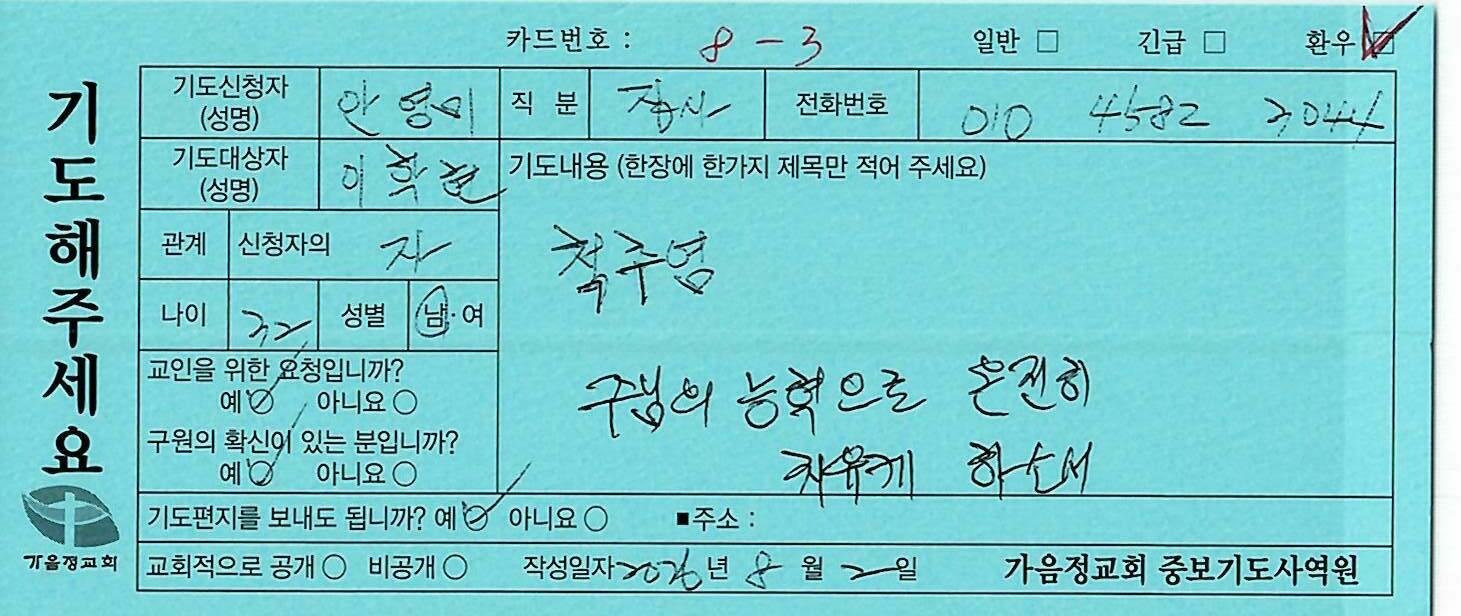 카드번호 : 8-3 일반 □ 긴급 □ 환우 □
기도해주세요
기도신청자 (성명) 안영미 직 분 집사 전화번호 010 4582 3044
기도대상자 (성명) 이학현 기도내용 (한장에 한가지 제목만 적어 주세요)
관계 신청자의 자
척주염
나이 32 성별 남·여
교인을 위한 요청입니까?
예 ○ 아니요 ○
주님의 능력으로 온전히
구원의 확신이 있는 분입니까?
예 ○ 아니요 ○
치유케 하소서
기도편지를 보내도 됩니까? 예 ○ 아니요 ○ ■주소 :
교회적으로 공개 ○ 비공개 ○ 작성일자 2026년 8월 2일 가음정교회 중보기도사역원
가음정교회